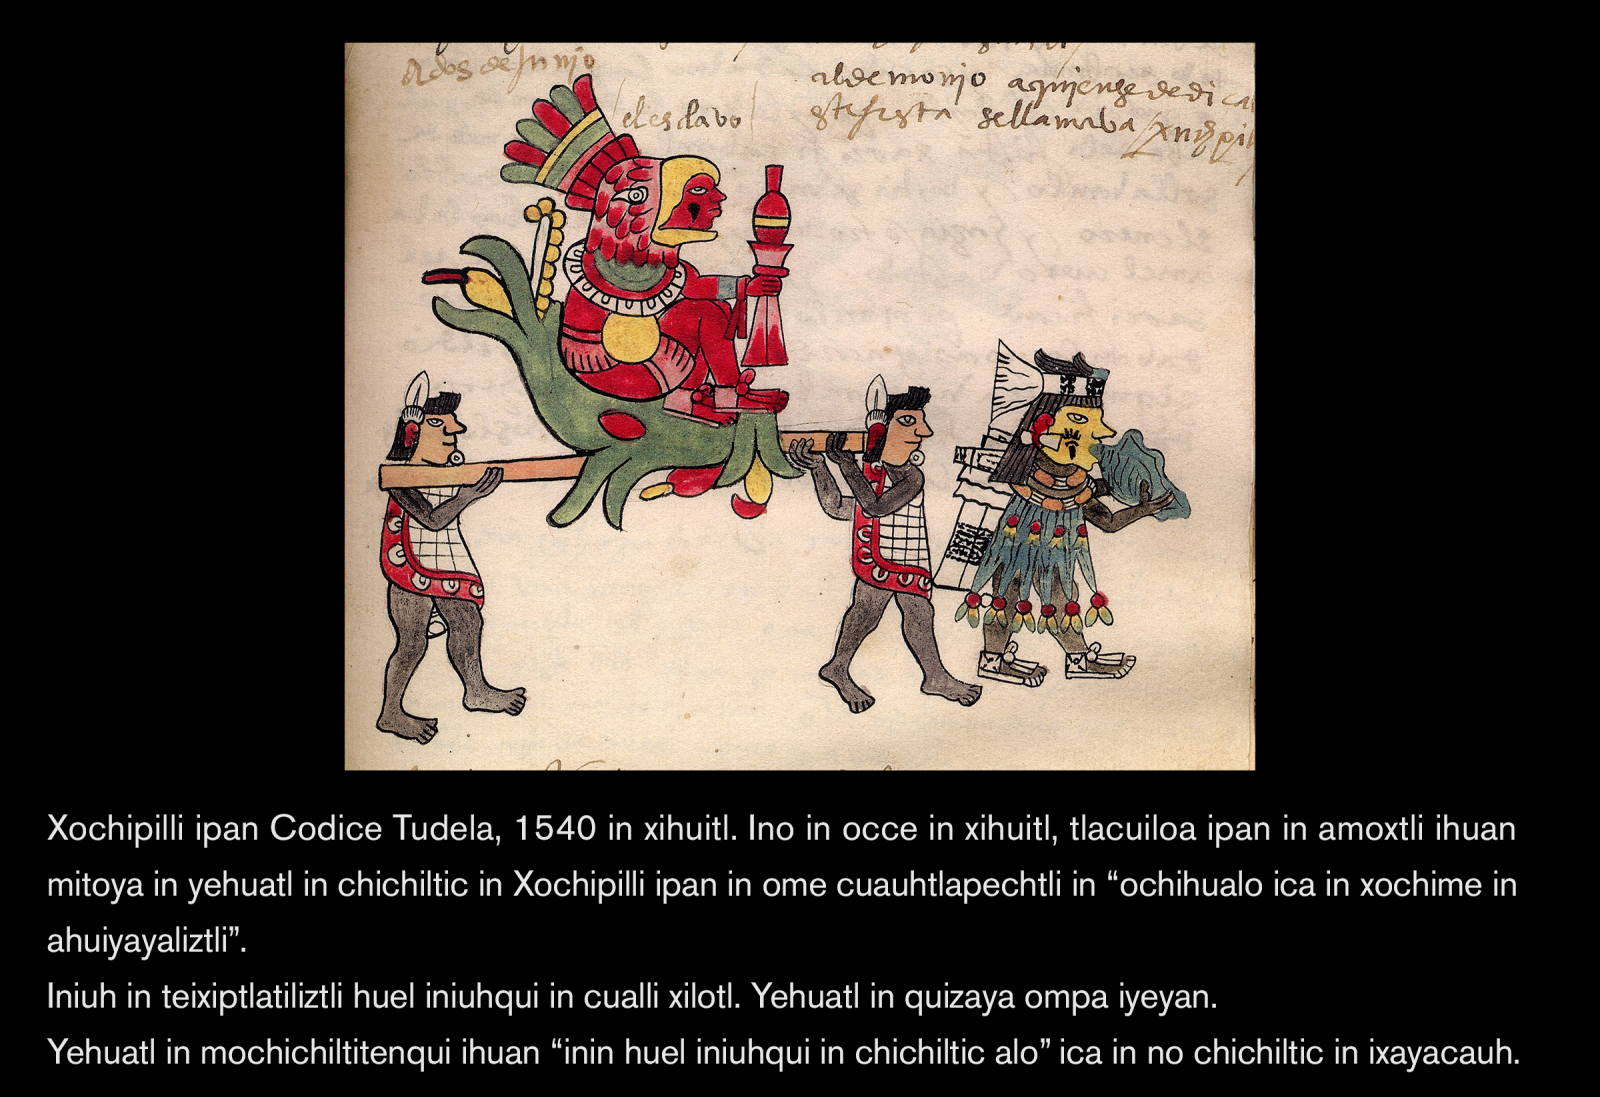 A dos de Junjo
el esclavo
al demonjo aqujen se dedica
esta fiesta se llamava
Xochipilli ipan Codice Tudela, 1540 in xihuitl. Ino in occe in xihuitl, tlacuiloa ipan in amoxtli ihuan
mitoya in yehuatl in chichiltic in Xochipilli ipan in ome cuauhtlapechtli in “ochihualo ica in xochime in
ahuiyayaliztli”.
Iniuh in teixiptlatiliztli huel iniuhqui in cualli xilotl. Yehuatl in quizaya ompa iyeyan.
Yehuatl in mochichiltitenqui ihuan “inin huel iniuhqui in chichiltic alo” ica in no chichiltic in ixayacauh.